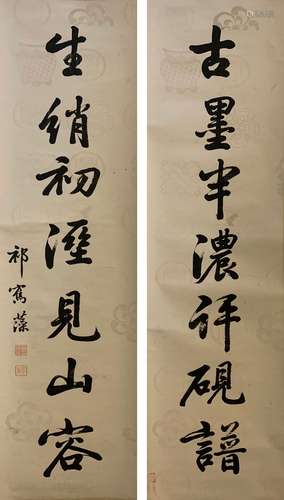 古墨半濃評硯譜
生綃初溼見山容
祁寯藻